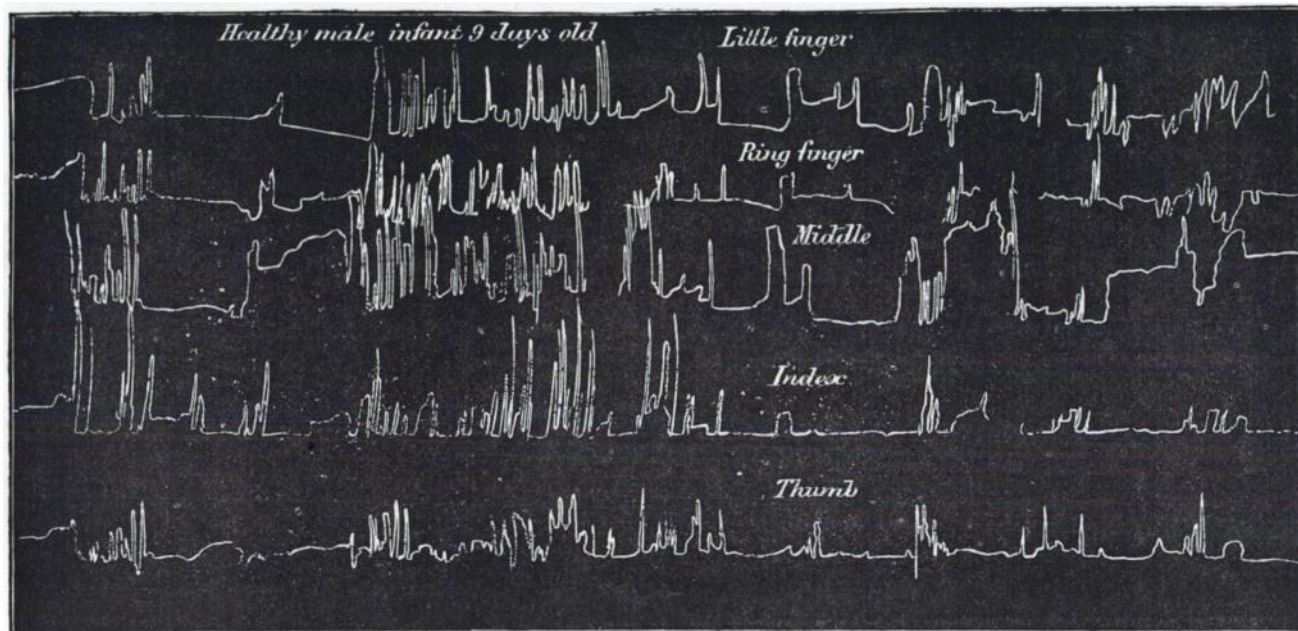 Healthy male infant 9 days old
Little finger
Ring finger
Middle
Index
Thumb